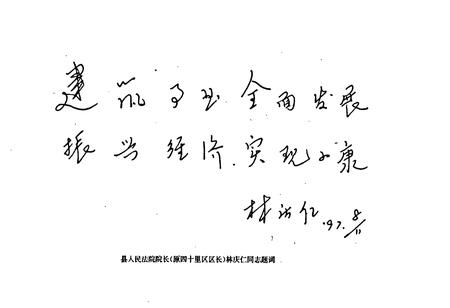 建筑为主 全面发展
振兴经济.实现小康
林庆仁 '97. 8/11
县人民法院院长(原四十里区区长)林庆仁同志题词